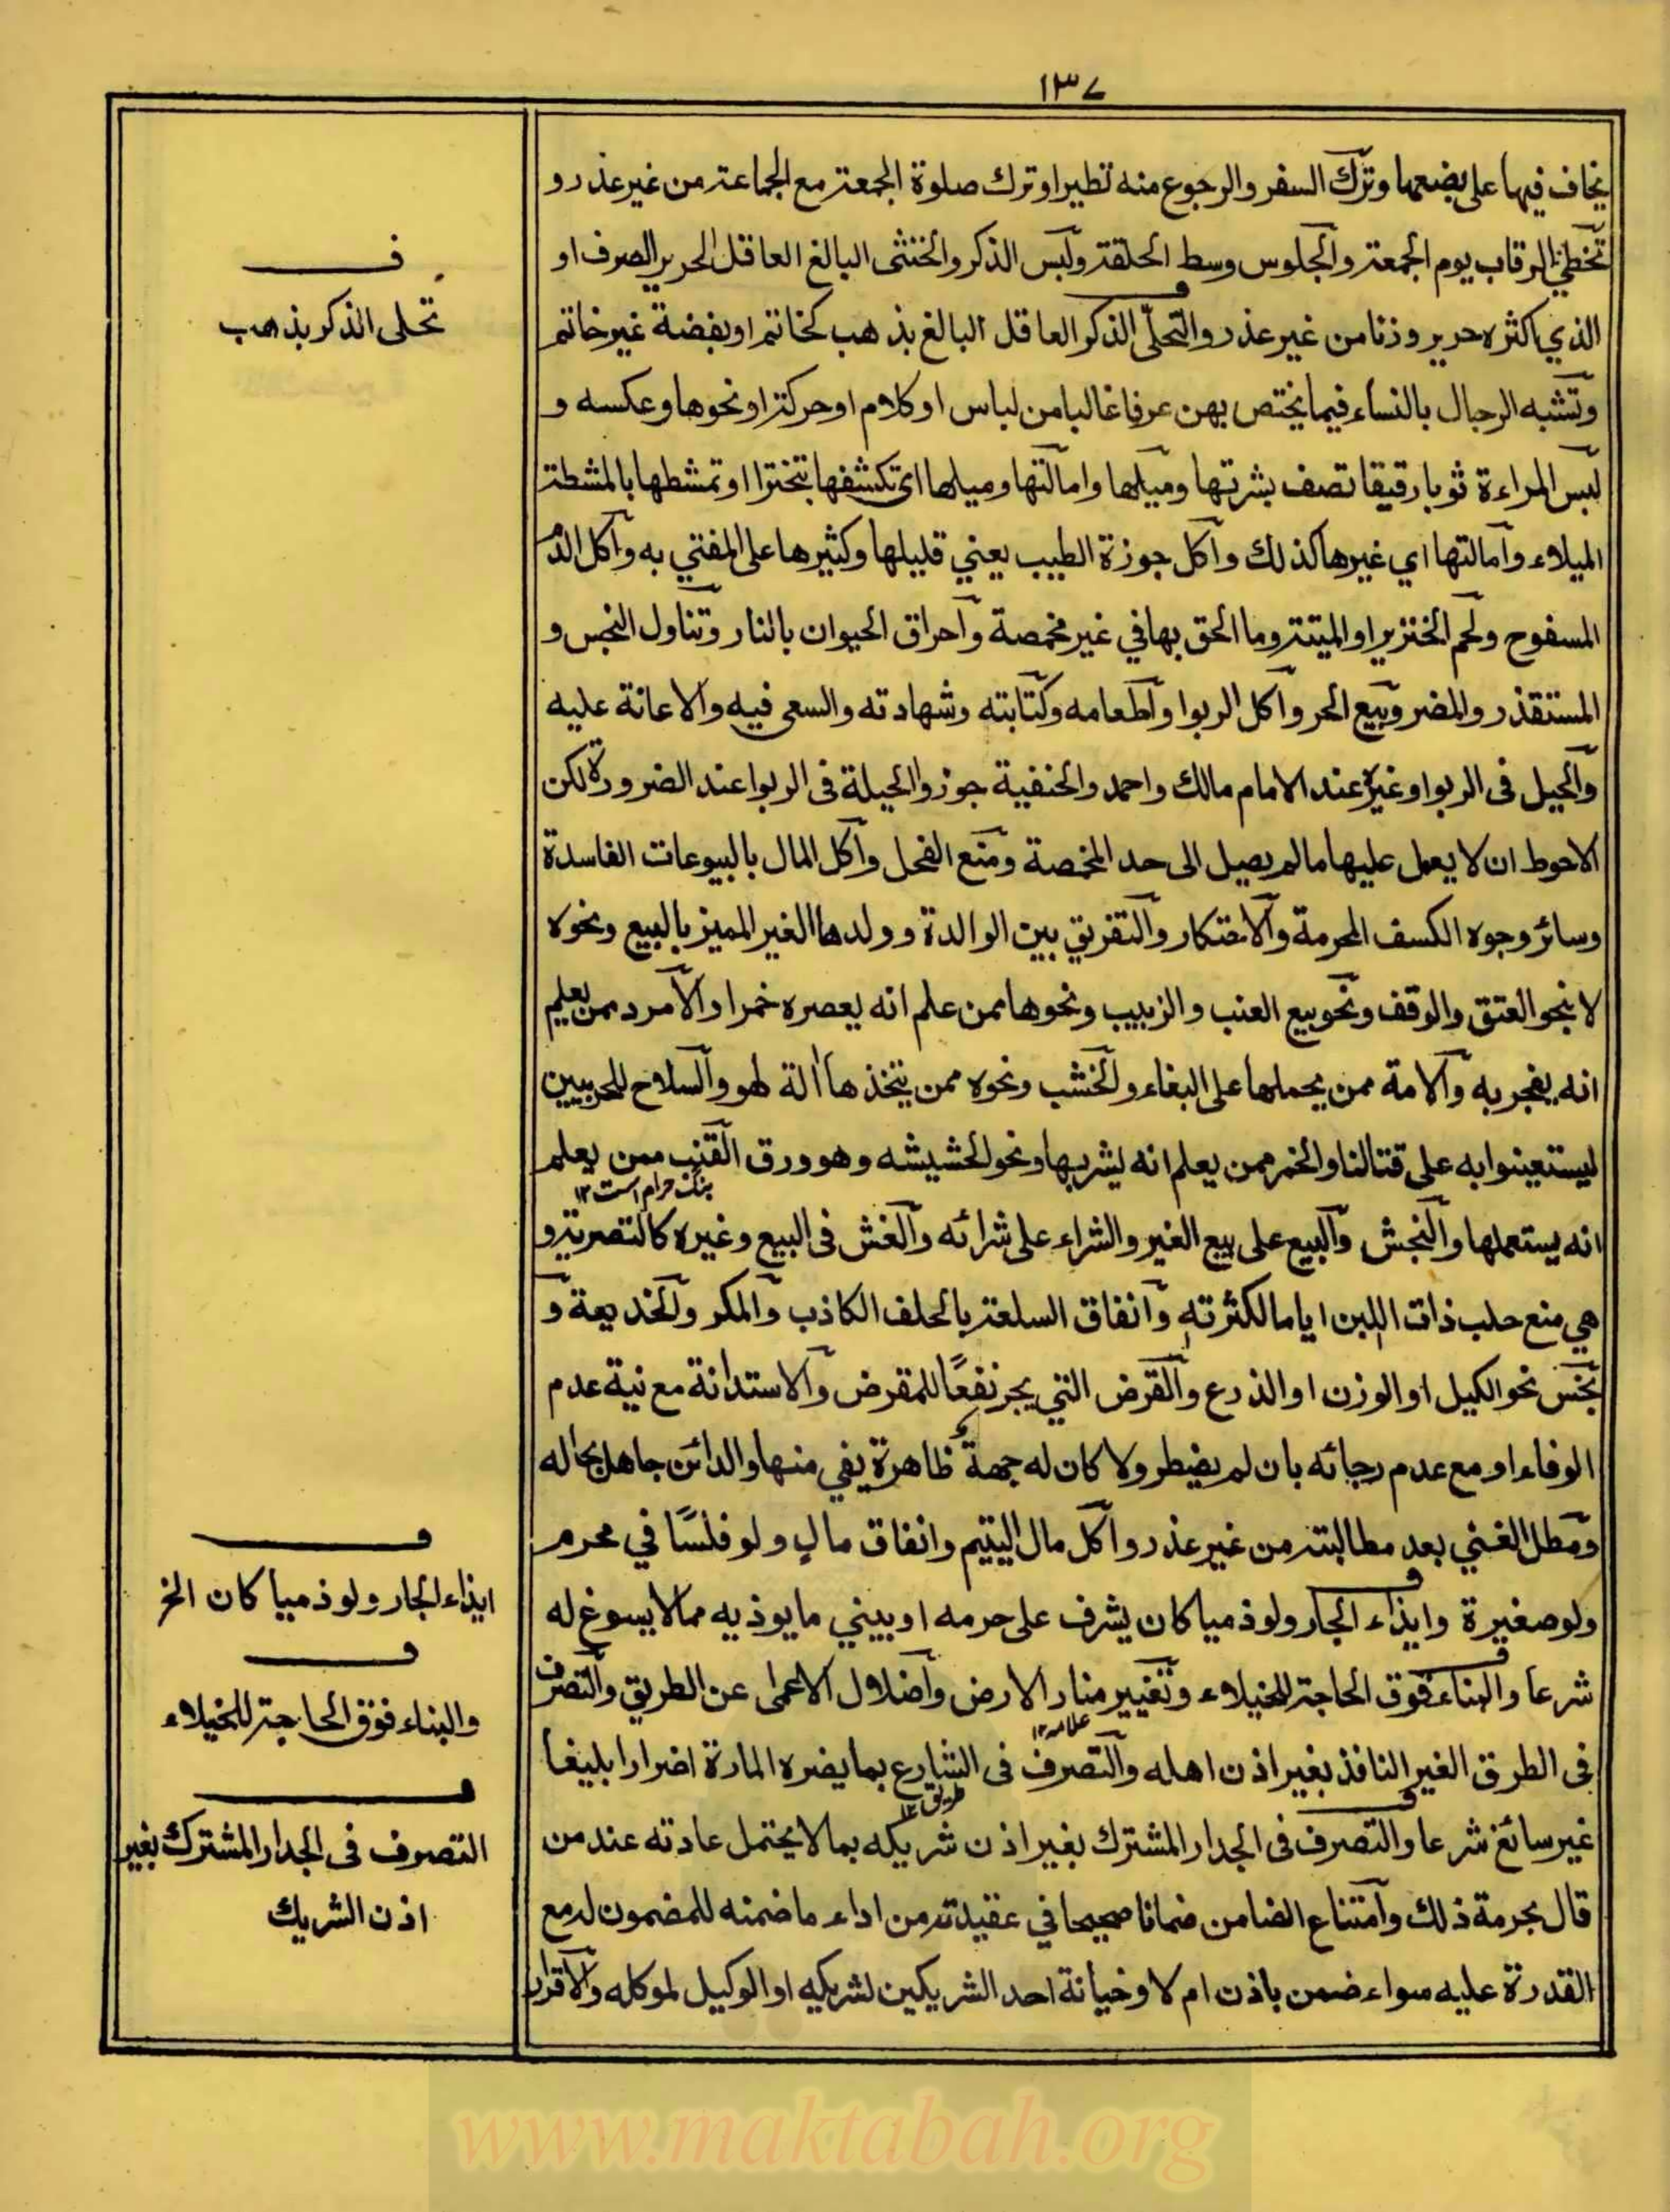 ١٣٧
يخاف فيها على بضعها وترك السفر والرجوع منه تطيرا وترك صلوة الجمعة مع الجماعة من غير عذر و
تخطي الرقاب يوم الجمعة والجلوس وسط الحلقة ولبس الذكر والخنثى البالغ العاقل الحرير الصرف او
الذي اكثره حرير وزنا من غير عذر والتحلّي الذكر العاقل البالغ بذهب كخاتم او بفضة غير خاتم
وتشبه الرجال بالنساء فيما يختص بهن عرفا غالبا من لباس او كلام او حركة او نحوها وعكسه و
لبس المراءة ثوبا رقيقا تصف بشرتها وميلها وامالتها وميلها اى تكشفها بتخترا او تمشطها بالمشطة
الميلاء وامالتها اي غيرها كذلك واكل جوزة الطيب يعني قليلها وكثيرها على المفتي به واكل الدم
المسفوح ولحم الخنزير او الميتة وما الحق بها في غير مخمصة واحراق الحيوان بالنار وتناول النجس و
المستقذر والمضر وبيع الحر واكل الربوا واطعامه وكتابته وشهادته والسعى فيه والاعانة عليه
والحيل فى الربوا وغيره عند الامام مالك واحمد والحنفية جوزوا الحيلة فى الربوا عند الضرورة لكن
الاحوط ان لا يعمل عليها ما لم يصيل الى حد المخمصة ومنع الفحل واكل المال بالبيوعات الفاسدة
وسائر وجوه الكسف المحرمة والاحتكار والتفريق بين الوالدة وولدها الغير المميز بالبيع ونحوه
لا بنحو العتق والوقف ونحو بيع العنب والزبيب ونحوها ممن علم انه يعصره خمرا والامرد ممن يعلم
انه يفجر به والامة ممن يحملها على البغاء والخشب ونحوه ممن يتخذها الة لهو والسلاح للحربيين
ليستعينوا به على قتالنا والخمر ممن يعلم انه يشربها ونحو الحشيشه وهو ورق القنب ممن يعلم
بنگ حرام است ١٢
انه يستعملها والنجش والبيع على بيع الغير والشراء على شرائه والغش فى البيع وغيره كالتصرية و
هي منع حلب ذات اللبن اياما لكثرته وانفاق السلعة بالحلف الكاذب والمكر والخديعة و
بخس نحو الكيل او الوزن او الذرع والقرض التي يجر نفعًا للمقرض والاستدانة مع نية عدم
الوفاء او مع عدم رجائه بان لم يضطر ولا كان له جهة ظاهرة يفي منها والدائن جاهل بحاله
ومطل الغني بعد مطالبته من غير عذر واكل مال اليتيم وانفاق مال ولو فلسًا في محرم
ولو صغيرة وايذاء الجار ولو ذميا كان يشرف على حرمه او يبني ما يوذيه مما لا يسوغ له
شرعا والبناء فوق الحاجة للخيلاء وتغيير منار الارض واضلال الاعمى عن الطريق والتصرف
علامه ١٢
فى الطرق الغير النافذ بغير اذن اهله والتصرف فى الشارع بما يضره المارة اضرارا بليغا
طريق ١٢
غير سائغ شرعا والتصرف فى الجدار المشترك بغير اذن شريكه بما لا يحتمل عادته عند من
قال بحرمة ذلك وامتناع الضامن ضمانا صحيحا في عقيدته من اداء ما ضمنه للمضمون له مع
القدرة عليه سواء ضمن باذن ام لا وخيانة احد الشريكين لشريكه او الوكيل لموكله والاقرار
ف
تحلى الذكر بذهب
ف
ايذاء الجار ولو ذميا كان الخ
ف
والبناء فوق الحاجة للخيلاء
ف
التصرف فى الجدار المشترك بغير
اذن الشريك
www.maktabah.org